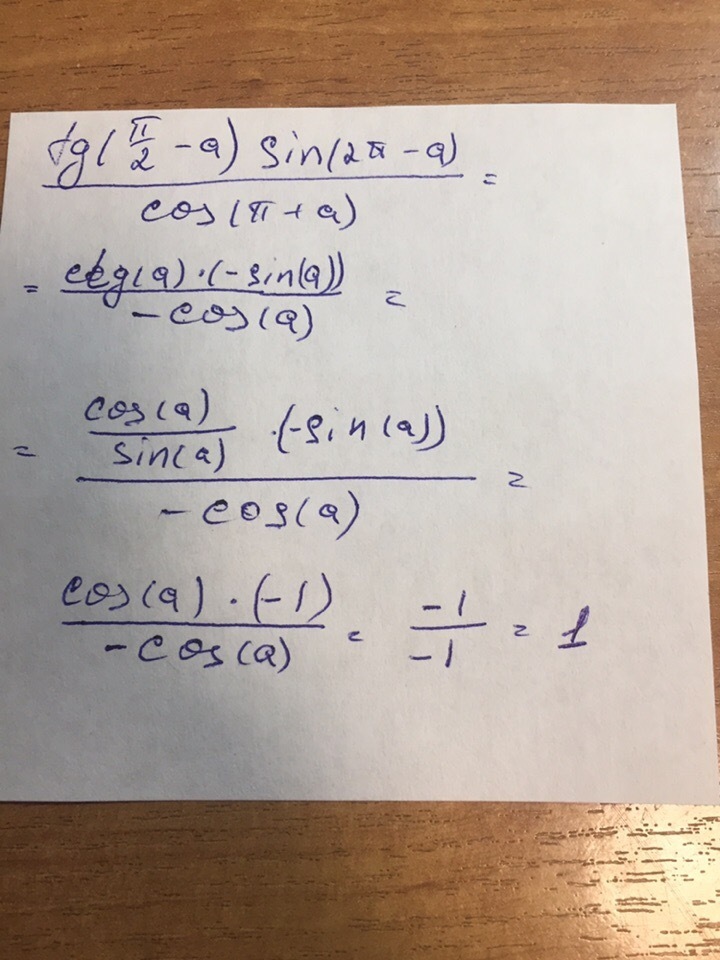 tg(π/2 - a) sin(2π - a) / cos(π + a) =
= ctg(a) · (-sin(a)) / -cos(a) =
= cos(a)/sin(a) · (-sin(a)) / -cos(a) =
cos(a) · (-1) / -cos(a) = -1 / -1 = 1